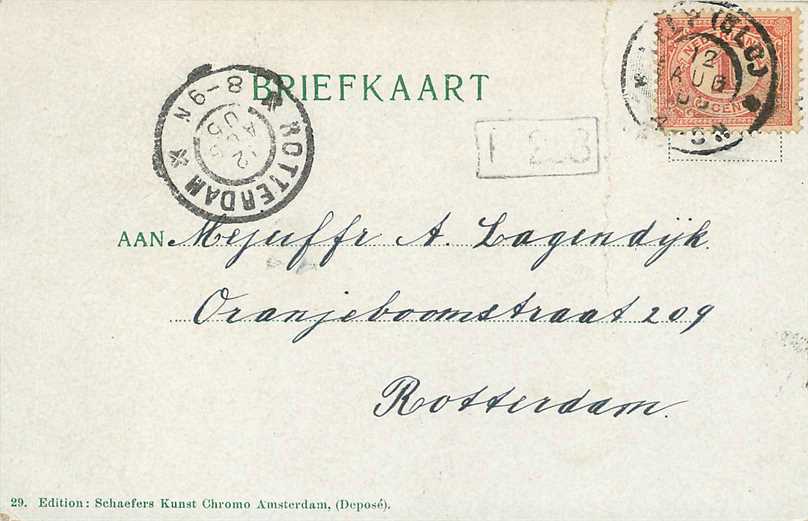 BRIEFKAART
ROTTERDAM
12 AUG 05
8-9N
(SLOJ
12
AUG
AAN Mejuffr A. Lagendijk
Oranjeboomstraat 209
Rotterdam.
29. Edition: Schaefers Kunst Chromo Amsterdam, (Deposé).